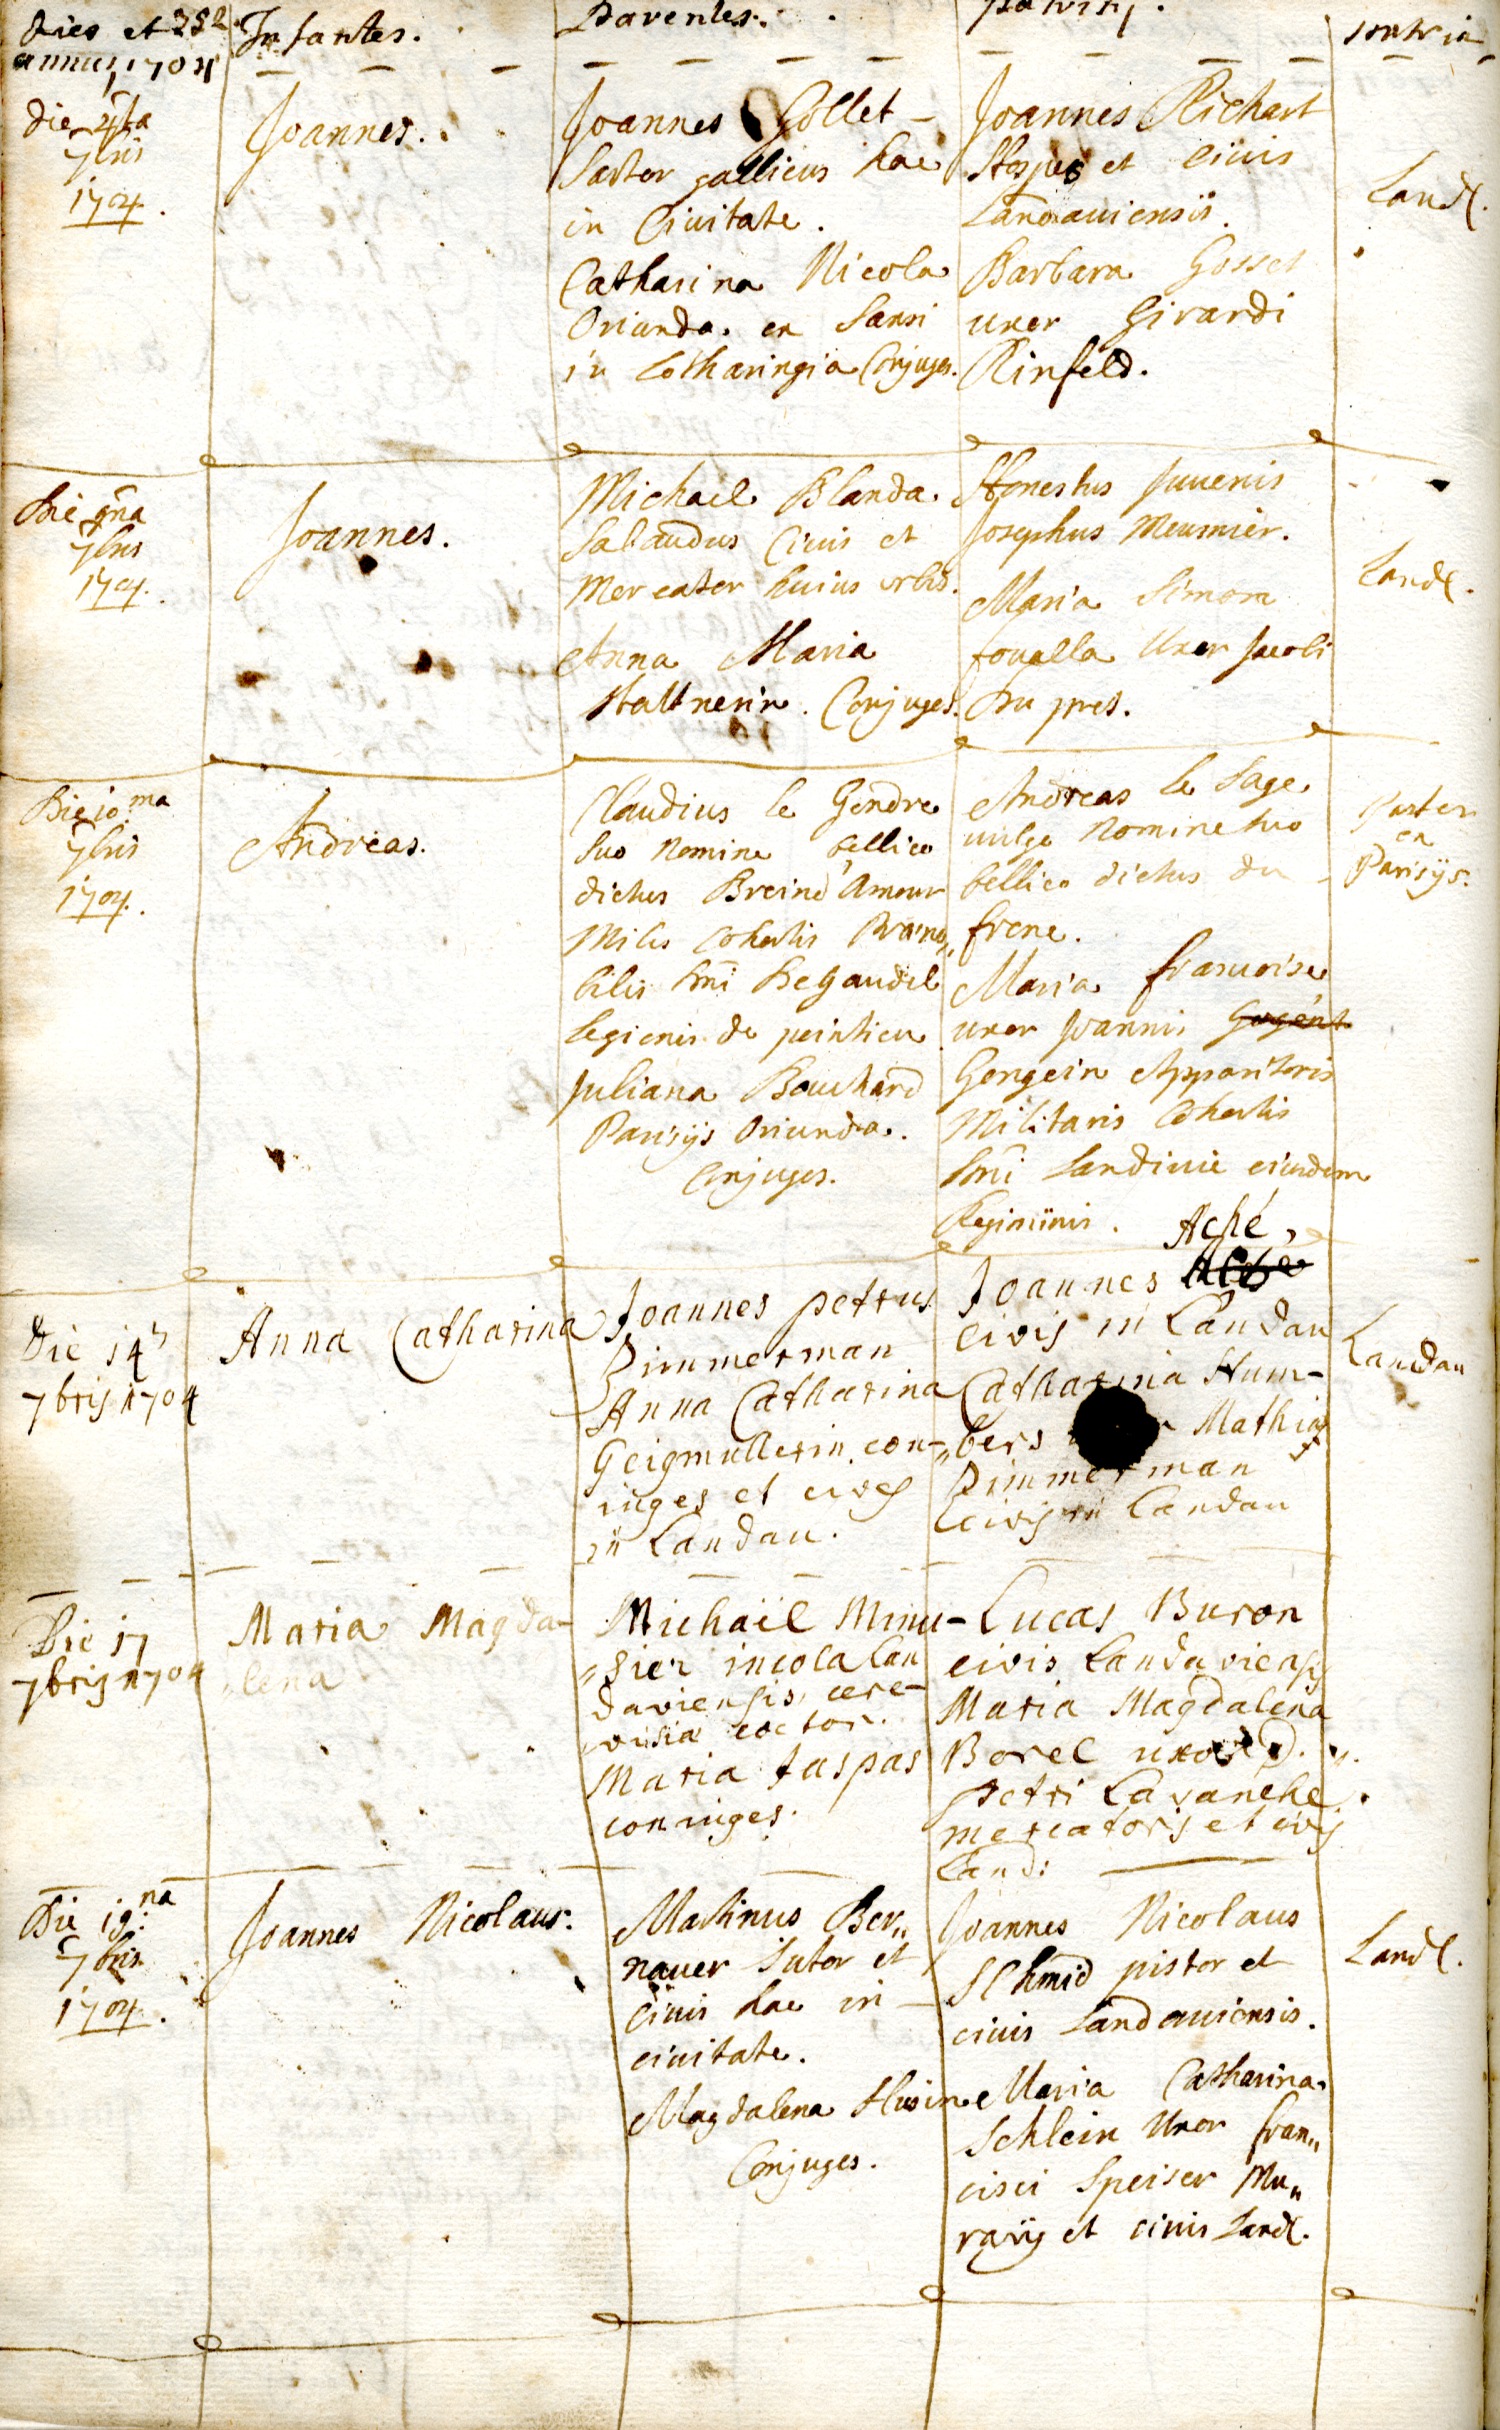 Dies et 252
annus 1704
Infantes.
Parentes.
patrini.
patria
die 4ta
7bris
1704.
Joannes.
Joannes Gollet
Sartor gallicus hac
in Civitate.
Catharina Nicola
Oriunda ex Sansi
in Lotharingia Conjuges.
Joannes Richart
Hospes et Civis
Landauiensis.
Barbara Gosset
uxor Girardi
Rinfeld.
Land.
Die 9na
7bris
1704.
Joannes.
Michael Blanda
Sabaudus Civis et
Mercator huius urbis.
Anna Maria
Haltnerin. Conjuges.
Honestus Juvenis
Josephus Meusnier.
Maria Simon
Uxor Jacobi
Du pres.
Land.
Die 10ma
7bris
1704.
Andreas.
Claudius le Gendre
suo Nomine bellico
dictus Breind'Amour
Miles Cohortis
Dni
legionis de
Juliana Bouchard
Parisijs Oriunda.
Conjuges.
Andreas le Sage
vulgo Nomine suo
bellico dictus du
frene.
Maria francoise
uxor Joannis Gogent
Gengein Apparitoris
Militaris Cohortis
Dni Landivie eiusdem
Regiminis.
ex
Parisijs.
Die 14
7bris 1704
Anna Catharina
Joannes petrus
Zimmerman
Anna Catharina
Geigmullerin con-
iuges et cives
in Landau.
Aché
Joannes
civis in Landau
Catharina Hum-
bers Mathiae
Zimmerman
civis in Landau
Landau
Die 17
7bris 1704
Maria Magda-
lena
Michaël Minu-
sier incola Lan
daviensis, cere-
visia coctor.
Maria Jaspas
coniuges.
Lucas Buron
civis Landaviensis
Maria Magdalena
Borel uxor D.
petri Lavanche
mercatoris et civis
Land:
Die 19na
7bris
1704.
Joannes Nicolaus.
Martinus Ber„
nauer Sutor et
Civis hac in
civitate.
Magdalena Husin
Conjuges.
Joannes Nicolaus
Schmid pistor et
civis Landauiensis.
Maria Catharina
Schlein Uxor fran„
cisci Speiser Mu„
rarij et civis Land.
Land.